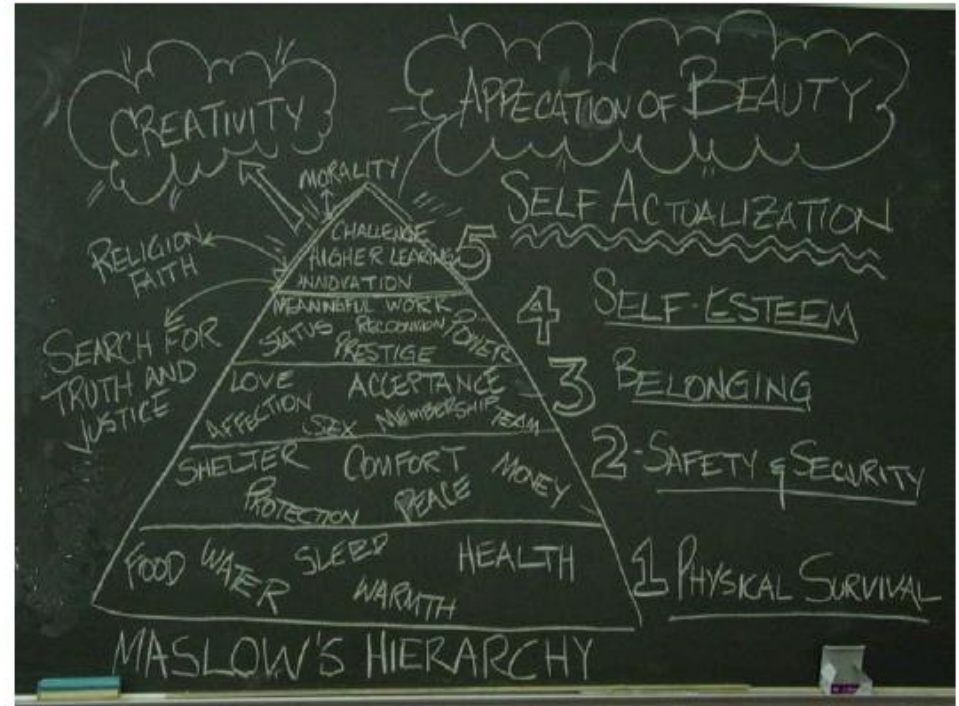 CREATIVITY
APPECATION OF BEAUTY
MORALITY
SELF ACTUALIZATION
CHALLENGE
HIGHER LEARING
INNOVATION
5
RELIGION
FAITH
MEANINGFUL WORK
STATUS RECOGNITION POWER
PRESTIGE
4
SELF-ESTEEM
SEARCH FOR
TRUTH AND
JUSTICE
LOVE ACCEPTANCE
AFFECTION SEX MEMBERSHIP TEAM
3
BELONGING
SHELTER COMFORT MONEY
PROTECTION PEACE
2-SAFETY & SECURITY
FOOD WATER SLEEP HEALTH
WARMTH
1 PHYSICAL SURVIVAL
MASLOW'S HIERARCHY